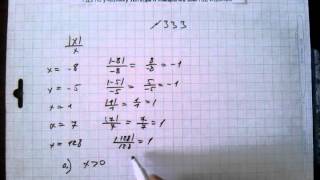 №333
|x|/x
x = -8 |-8|/-8 = 8/-8 = -1
x = -5 |-5|/-5 = 5/-5 = -1
x = 1 |1|/1 = 1/1 = 1
x = 7 |7|/7 = 7/7 = 1
x = 128 |128|/128 = 1
а) x>0